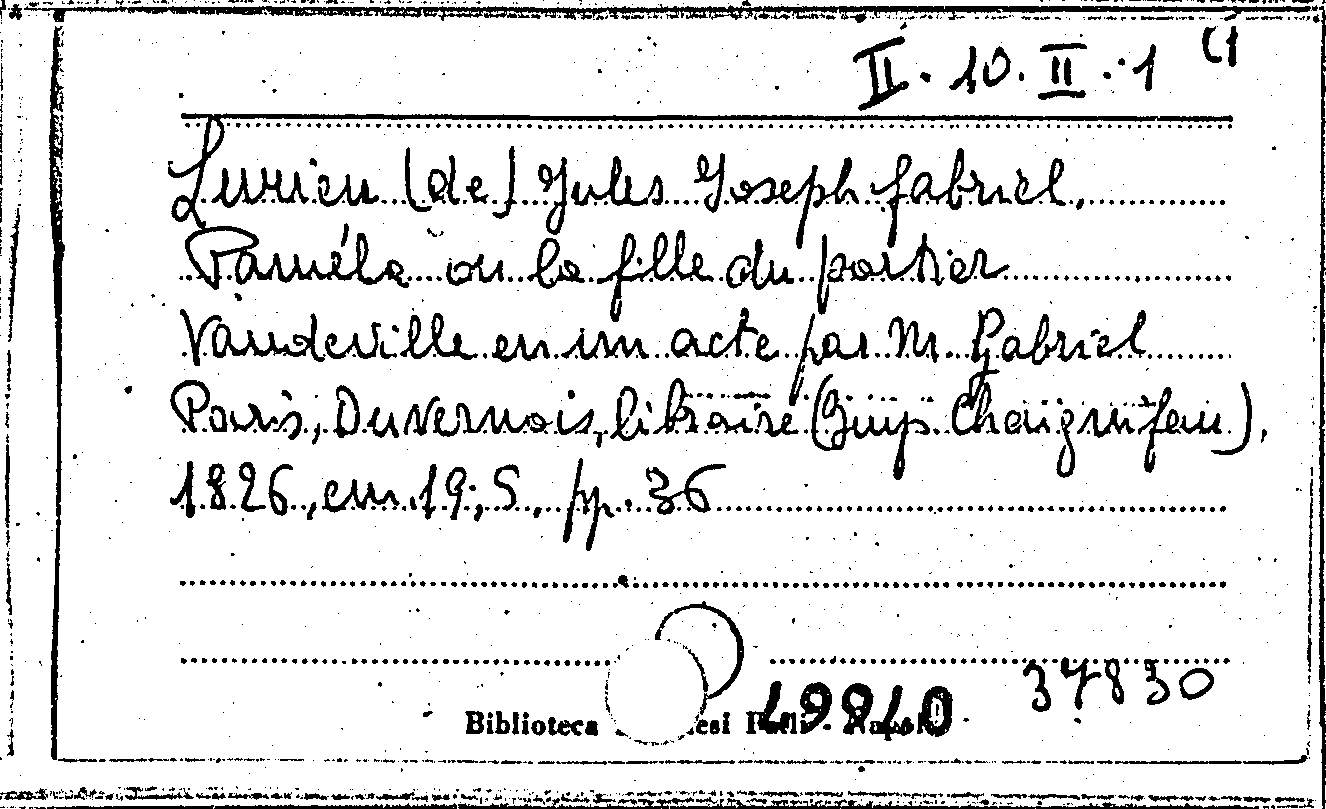 II. 10. II. 1 (1
Lurieu (de) Jules Joseph Gabriel.
Paméla ou la fille du portier
Vaudeville en un acte par M. Gabriel
Paris, Duvernois, libraire (Imp. Chaigneau),
1826, cm. 19,5. pp. 36
37830
Biblioteca